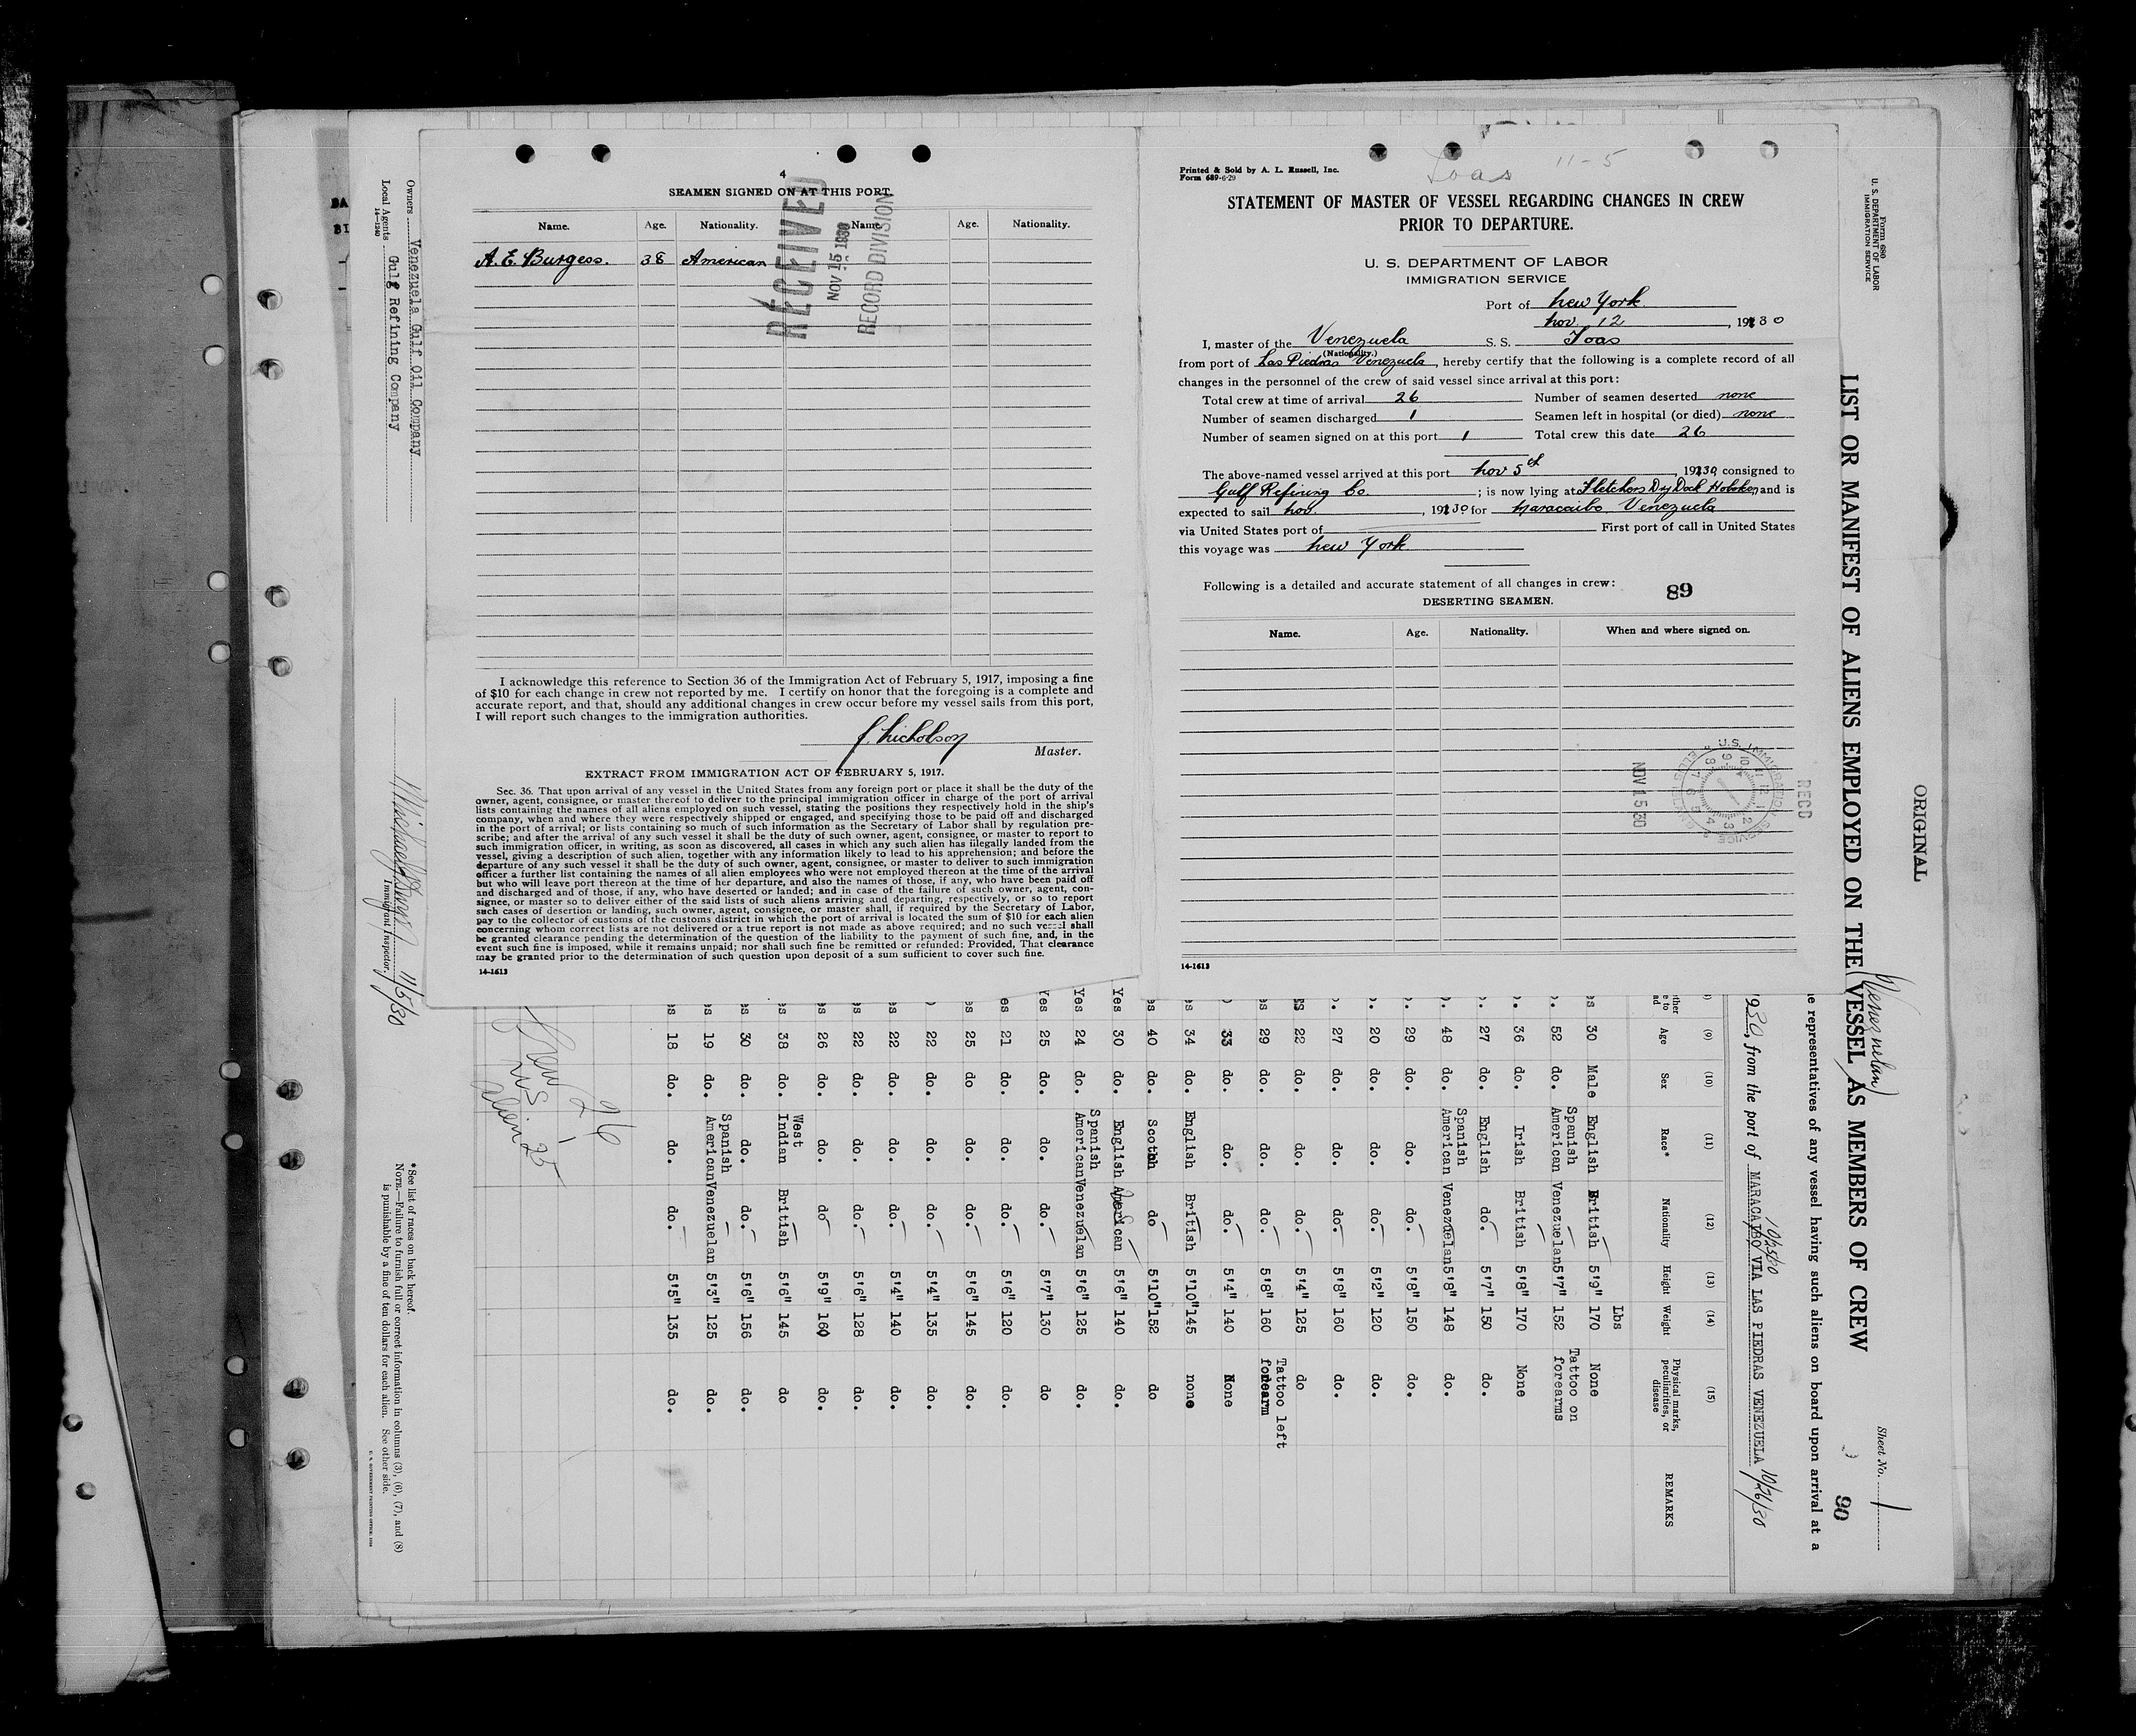 4
SEAMEN SIGNED ON AT THIS PORT.
Name. Age. Nationality. Name. Age. Nationality.
A. E. Burgess. 38 American
RECEIVED
NOV 15 1930
RECORD DIVISION
I acknowledge this reference to Section 36 of the Immigration Act of February 5, 1917, imposing a fine
of $10 for each change in crew not reported by me. I certify on honor that the foregoing is a complete and
accurate report, and that, should any additional changes in crew occur before my vessel sails from this port,
I will report such changes to the immigration authorities.
J. Nicholson
Master.
EXTRACT FROM IMMIGRATION ACT OF FEBRUARY 5, 1917.
Sec. 36. That upon arrival of any vessel in the United States from any foreign port or place it shall be the duty of the
owner, agent, consignee, or master thereof to deliver to the principal immigration officer in charge of the port of arrival
lists containing the names of all aliens employed on such vessel, stating the positions they respectively hold in the ship's
company, when and where they were respectively shipped or engaged, and specifying those to be paid off and discharged
in the port of arrival; or lists containing so much of such information as the Secretary of Labor shall by regulation pre-
scribe; and after the arrival of any such vessel it shall be the duty of such owner, agent, consignee, or master to report to
such immigration officer, in writing, as soon as discovered, all cases in which any such alien has illegally landed from the
vessel, giving a description of such alien, together with any information likely to lead to his apprehension; and before the
departure of any such vessel it shall be the duty of such owner, agent, consignee, or master to deliver to such immigration
officer a further list containing the names of all alien employees who were not employed thereon at the time of the arrival
but who will leave port thereon at the time of her departure, and also the names of those, if any, who have been paid off
and discharged and of those, if any, who have deserted or landed; and in case of the failure of such owner, agent, con-
signee, or master so to deliver either of the said lists of such aliens arriving and departing, respectively, or so to report
such cases of desertion or landing, such owner, agent, consignee, or master shall, if required by the Secretary of Labor,
pay to the collector of customs of the customs district in which the port of arrival is located the sum of $10 for each alien
concerning whom correct lists are not delivered or a true report is not made as above required; and no such vessel shall
be granted clearance pending the determination of the question of the liability to the payment of such fine, and, in the
event such fine is imposed, while it remains unpaid; nor shall such fine be remitted or refunded: Provided, That clearance
may be granted prior to the determination of such question upon deposit of a sum sufficient to cover such fine.
14-1613
Printed & Sold by A. L. Russell, Inc.
Form 689-6-29
Toas 11-5
STATEMENT OF MASTER OF VESSEL REGARDING CHANGES IN CREW
PRIOR TO DEPARTURE.
U. S. DEPARTMENT OF LABOR
IMMIGRATION SERVICE
Port of New York
Nov. 12, 1930
I, master of the Venezuela S. S. Toas
(Nationality.)
from port of Las Piedras Venezuela, hereby certify that the following is a complete record of all
changes in the personnel of the crew of said vessel since arrival at this port:
Total crew at time of arrival 26 Number of seamen deserted none
Number of seamen discharged 1 Seamen left in hospital (or died) none
Number of seamen signed on at this port 1 Total crew this date 26
The above-named vessel arrived at this port Nov 5th, 1930, consigned to
Gulf Refining Co.; is now lying at Fletchers Dry Dock Hoboken, and is
expected to sail Nov., 1930 for Maracaibo Venezuela
via United States port of First port of call in United States
this voyage was New York
Following is a detailed and accurate statement of all changes in crew:
89
DESERTING SEAMEN.
Name. Age. Nationality. When and where signed on.
REC'D
U.S. IMMIGRATION SERVICE ELLIS ISLAND
NOV 15 30
14-1613
ORIGINAL
Form 680
U. S. DEPARTMENT OF LABOR
IMMIGRATION SERVICE
Sheet No. 1
(Venezuelan)
LIST OR MANIFEST OF ALIENS EMPLOYED ON THE VESSEL AS MEMBERS OF CREW
90
representatives of any vessel having such aliens on board upon arrival at a
10/25/30
1930, from the port of MARACAIBO VIA LAS PIEDRAS VENEZUELA 10/26/30
(9) (10) (11) (12) (13) (14) (15)
Age Sex Race* Nationality Height Weight Physical marks, peculiarities, or disease REMARKS
Lbs
30 Male English British 5'9" 170 None
52 do. Spanish American Venezuelan 5'7" 152 Tattoo on forearms
36 do. Irish British 5'8" 170 None
27 do. English do. 5'7" 150 do.
48 do. Spanish American Venezuelan 5'8" 148 do.
29 do. do. do. 5'8" 150 do.
20 do. do. do. 5'2" 120 do.
27 do. do. do. 5'8" 160 do.
22 do. do. do. 5'4" 125 do
29 do. do. do. 5'8" 160 Tattoo left forearm
33 do. do. do. 5'4" 140 None
34 do. English British 5'10" 145 none
40 do. Scotch do 5'10" 152 do
Yes 30 do. English American 5'6" 140 do.
Yes 24 do. Spanish American Venezuelan 5'6" 125 do.
Yes 25 do. do. do. 5'7" 130 do
21 do. do. do. 5'6" 120 do.
25 do. do. do. 5'6" 145 do.
22 do. do. do. 5'4" 135 do.
22 do. do. do. 5'4" 140 do.
22 do. do. do. 5'6" 128 do.
26 do. do. do 5'9" 160 do.
38 do. West Indian British 5'6" 145 do
30 do. do. do. 5'6" 156 do.
19 do. Spanish American Venezuelan 5'3" 125 do.
18 do. do. do. 5'5" 135 do.
Crew 26
U.S. 1
Alien 25
Owners Venezuela Gulf Oil Company
Local Agents Gulf Refining Company
14-1240
11/5/30
Immigrant Inspector.
*See list of races on back hereof.
NOTE.—Failure to furnish full or correct information in columns (3), (6), (7), and (8)
is punishable by a fine of ten dollars for each alien. See other side.